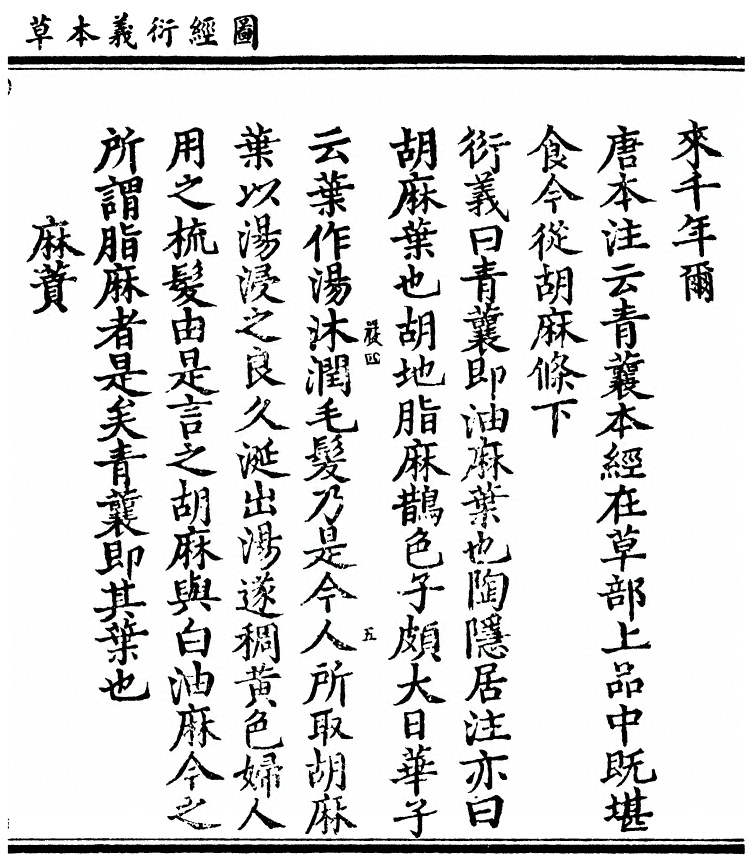 圖經衍義本草
來千年爾
唐本注云青蘘本經在草部上品中既堪
食今從胡麻條下
衍義曰青蘘即油麻葉也陶隱居注亦曰
胡麻葉也胡地脂麻鵲色子頗大日華子
四
五
云葉作湯沐潤毛髮乃是今人所取胡麻
葉以湯浸之良久涎出湯遂稠黃色婦人
用之梳髮由是言之胡麻與白油麻今之
所謂脂麻者是矣青蘘即其葉也
麻蕡